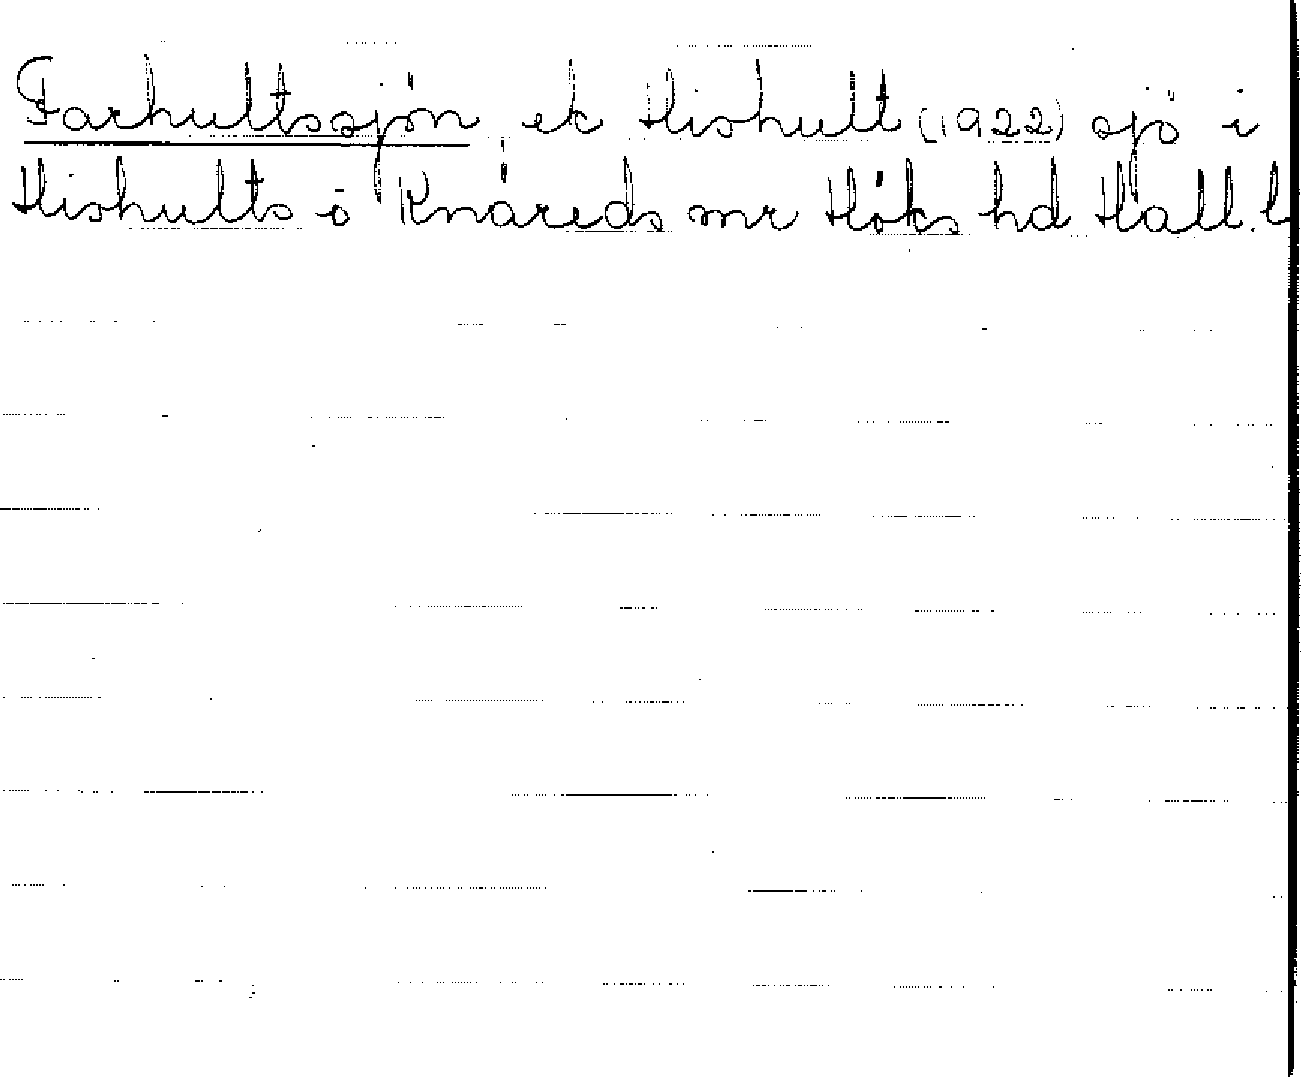 Farhultssjön ek Hishult (1922) sjö i
Hishults o Knäreds snr Höks hd Hall. l